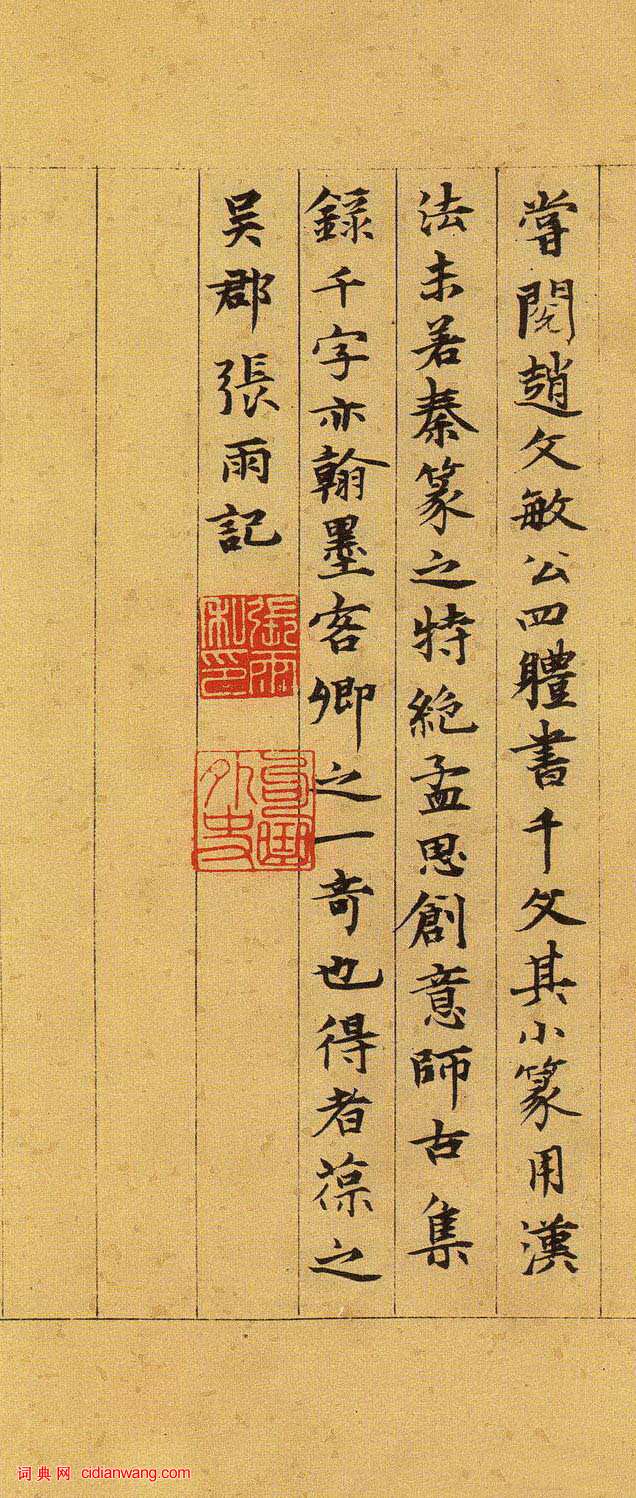 嘗閱趙文敏公四體書千文其小篆用漢
法未若秦篆之特絕孟思創意師古集
錄千字亦翰墨客卿之一奇也得者葆之
吳郡張雨記
張雨私印
句曲外史
词典网 cidianwang.com